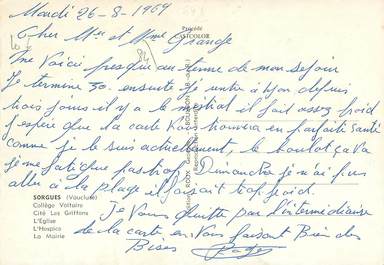 Mardi 26-8-1969
Procédé
CASTCOLOR
Cher Mr et Mme Grange
Me Voici presque au terme de mon sejour
Je termine 30. ensuite je rentre à Lyon depuis
trois jours il y a le mistral il fait assez froid
J'espere que la carte Vous trouvera en parfaite Santé
comme je le suis actuellement, le boulot ça va
je me fatigue pas trop. Dimanche je n'ai pu
aller à la plage il faisait trop froid.
SORGUES (Vaucluse)
Collège Voltaire
Cité Les Griffons
L'Eglise
L'Hospice
La Mairie
Je Vous quitte par l'intermédiaire
de la carte en Vous faisant Bien des
Bises